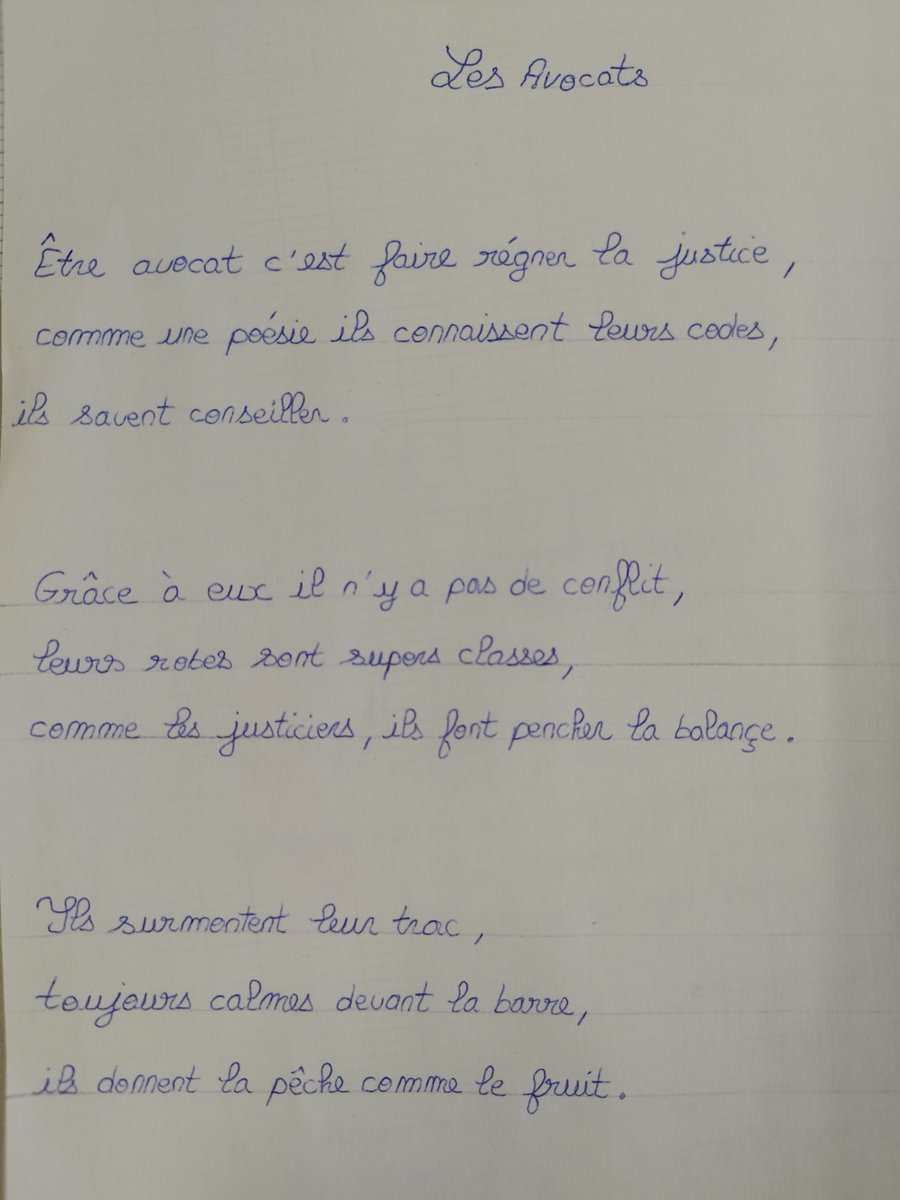 Les Avocats
Être avocat c'est faire régner la justice,
comme une poésie ils connaissent leurs codes,
ils savent conseiller.
Grâce à eux il n'y a pas de conflit,
leurs robes sont supers classes,
comme les justiciers, ils font pencher la balançe.
Ils surmontent leur trac,
toujours calmes devant la barre,
ils donnent la pêche comme le fruit.